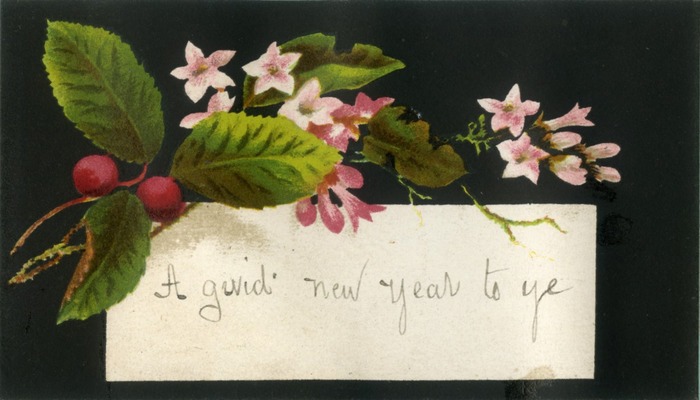 A gwid' new year to ye